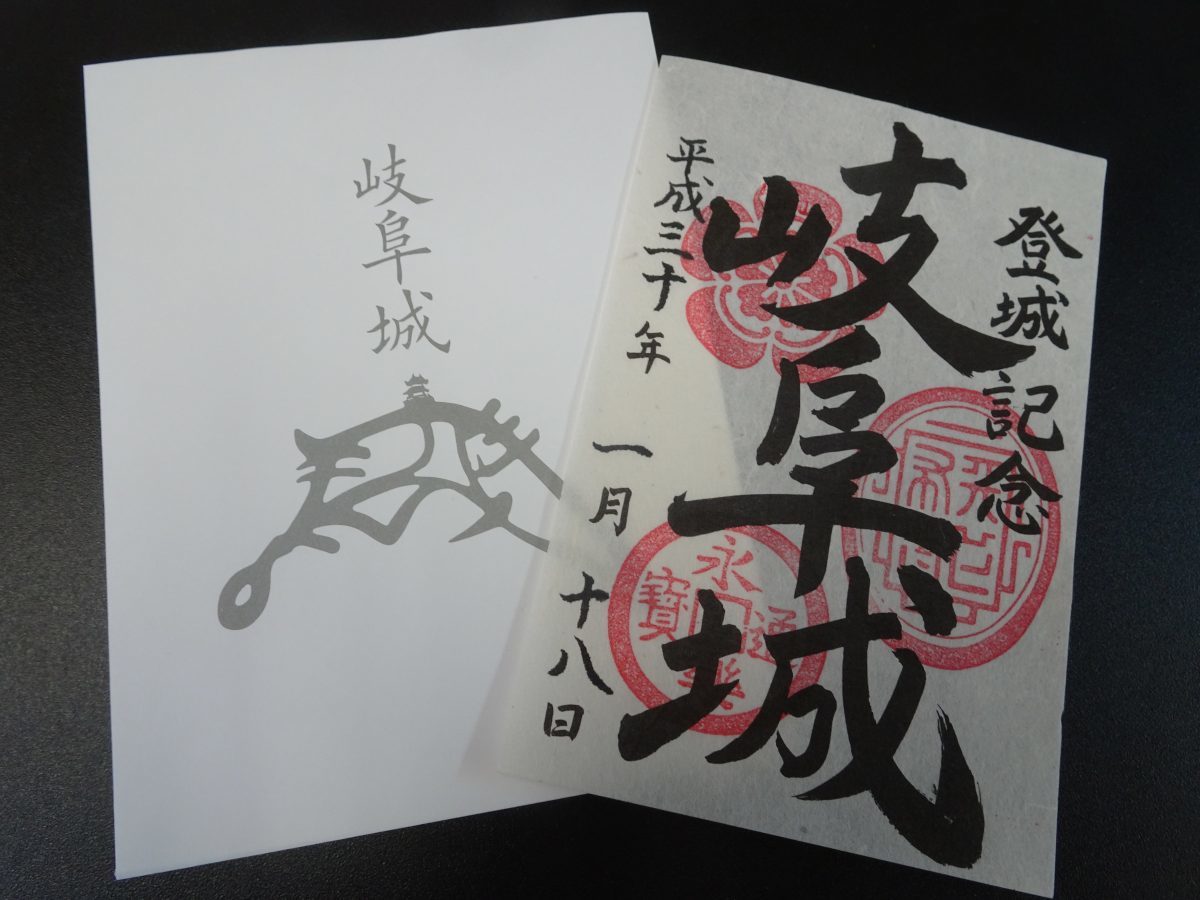 岐阜城
登城記念
岐阜城
平成三十年 一月 十八日
永樂通寳